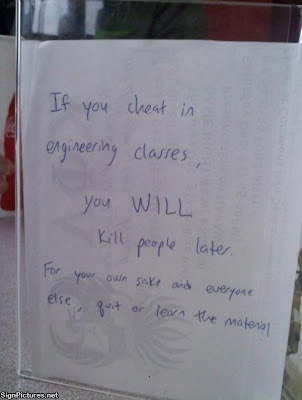 If you cheat in
engineering classes,
you WILL
kill people later.
For your own sake and everyone
else, quit or learn the material
SignPictures.net